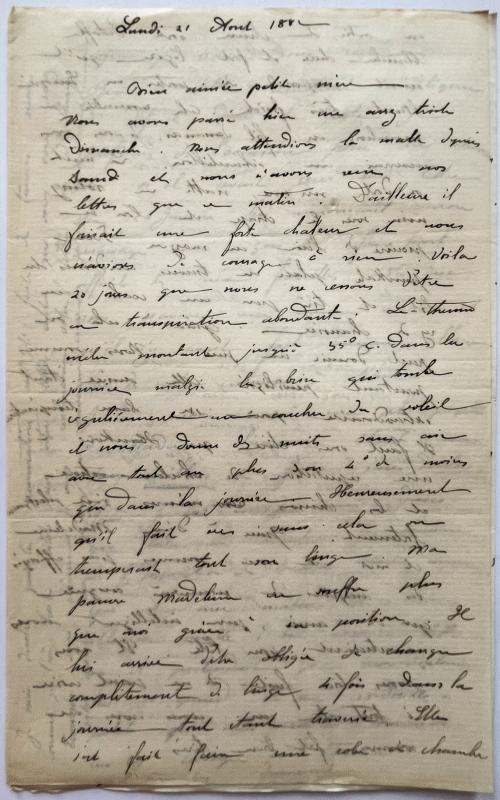 Lundi 21 Aout 188
Bien aimée petite mère
Nous avons passé hier un assez triste
Dimanche. Nous attendions la malle depuis
Samedi et nous n'avons reçu nos
lettres que ce matin. D'ailleurs il
faisait une forte chaleur et nous
n'avions de courage à rien. Voila
20 jours que nous ne cessons d'être
en transpiration abondante. Le thermo
mètre montant jusqu'à 35° C. dans la
journée malgré la brise qui tombe
régulièrement au coucher du soleil
et nous donne des nuits sans air
avec tout au plus 4° de moins
que dans la journée. Heureusement
qu'il fait sans cela on
tremperait tout son linge. Ma
pauvre Madeleine en souffre plus
que moi grâce à sa position. Il
lui arrive d'être obligée de changer
complètement de linge 4 fois dans la
journée tout étant traversé. Elle
s'est fait faire une robe de chambre